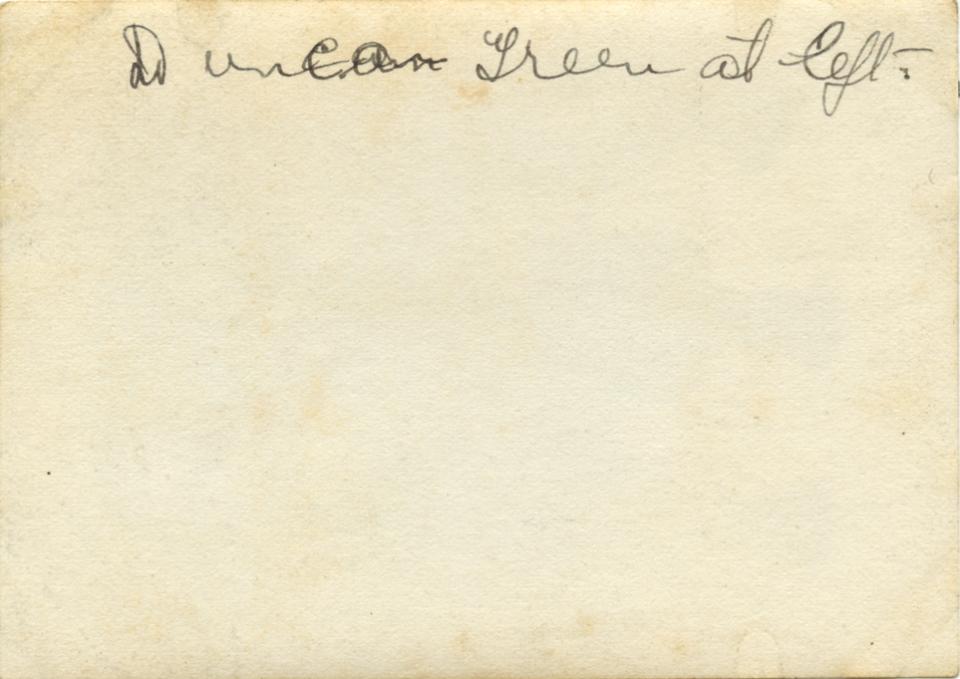 Duncan Green at left.